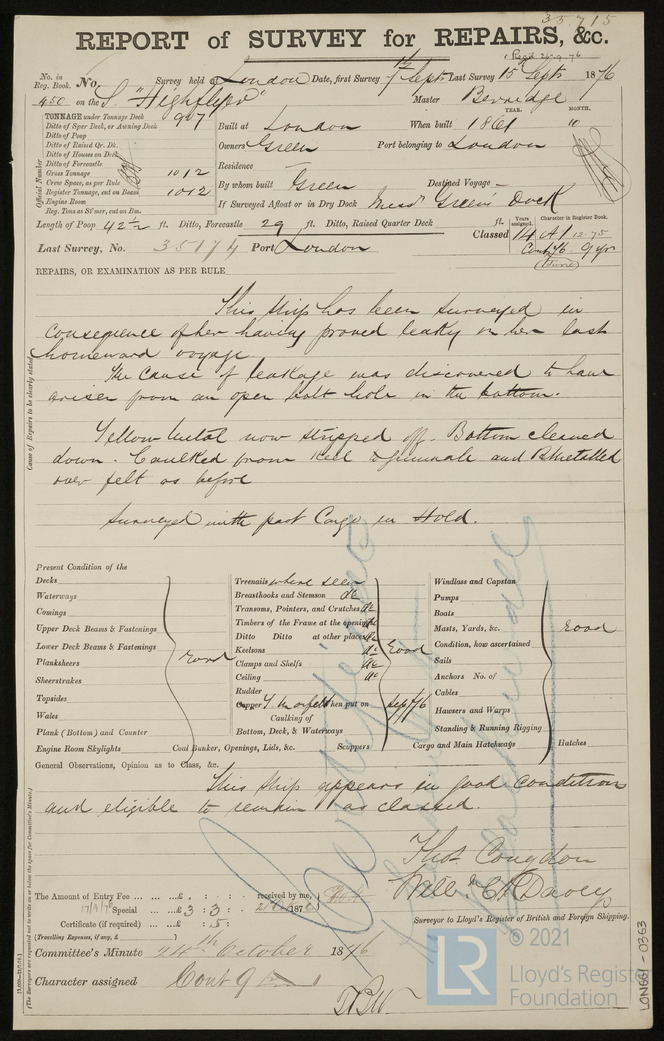 35,715
REPORT of SURVEY for REPAIRS, &c.
Recd 26.9.76
No. in Reg. Book. No. Survey held at London Date, first Survey 7th Sept Last Survey 15th Sept 1876
450 on the S. "Highflyer" Master Berridge
TONNAGE under Tonnage Deck 907
Ditto of Spar Deck, or Awning Deck
Ditto of Poop
Ditto of Raised Qr. Dk.
Ditto of Houses on Deck
Ditto of Forecastle
Gross Tonnage 1012
Crew Space, as per Rule
Register Tonnage, cut on Beam 1012
Engine Room
Reg. Tons as St'mer, cut on Bm.
Official Number
YEAR. MONTH.
Built at London When built 1861 10
Owners Green Port belonging to London
Residence
By whom built Green Destined Voyage
If Surveyed Afloat or in Dry Dock Messrs Greens Dock
Length of Poop 42½ ft. Ditto, Forecastle 29 ft. Ditto, Raised Quarter Deck ft.
Years assigned. Character in Register Book.
Classed 14 A1 12.75
Cont 76 9 yrs
(June)
Last Survey, No. 35174 Port London
REPAIRS, OR EXAMINATION AS PER RULE
Cause of Repairs to be clearly stated
This ship has been surveyed in
consequence of her having proved leaky on her last
homeward voyage
The cause of leakage was discovered to have
arisen from an open bolt hole in the bottom.
Yellow metal now stripped off. Bottom cleaned
down. Caulked from Keel to gunwale and Remetalled
over felt as before
Surveyed with part Cargo in Hold.
Present Condition of the
Decks
Waterways
Comings
Upper Deck Beams & Fastenings
Lower Deck Beams & Fastenings
Planksheers
Sheerstrakes
Topsides
Wales
Plank (Bottom) and Counter
Engine Room Skylights
Good
Treenails where seen
Breasthooks and Stemson do
Transoms, Pointers, and Crutches do
Timbers of the Frame at the openings do
Ditto Ditto at other places do
Keelsons do
Clamps and Shelfs do
Ceiling do
Rudder
Good
Copper Y. M or felt when put on Sep/76
Caulking of
Bottom, Deck, & Waterways
Coal Bunker, Openings, Lids, &c. Scuppers
Windlass and Capstan
Pumps
Boats
Masts, Yards, &c.
Condition, how ascertained
Sails
Anchors No. of
Cables
Hawsers and Warps
Standing & Running Rigging
Cargo and Main Hatchways Hatches
Good
General Observations, Opinion as to Class, &c.
This ship appears in good condition
and eligible to remain as classed.
Thos. Congdon
Will m C H Davey
Surveyor to Lloyd's Register of British and Foreign Shipping.
The Amount of Entry Fee £ : : received by me,
Special £ 3 : 3 : 187
Certificate (if required) £ : 5 :
(Travelling Expenses, if any, £ )
Committee's Minute 24th October 1876
Character assigned Cont 9
(The Surveyors are requested not to write on or below the space for Committee's Minute.)
© 2021
LR
Lloyd's Register
Foundation
LON661-0363